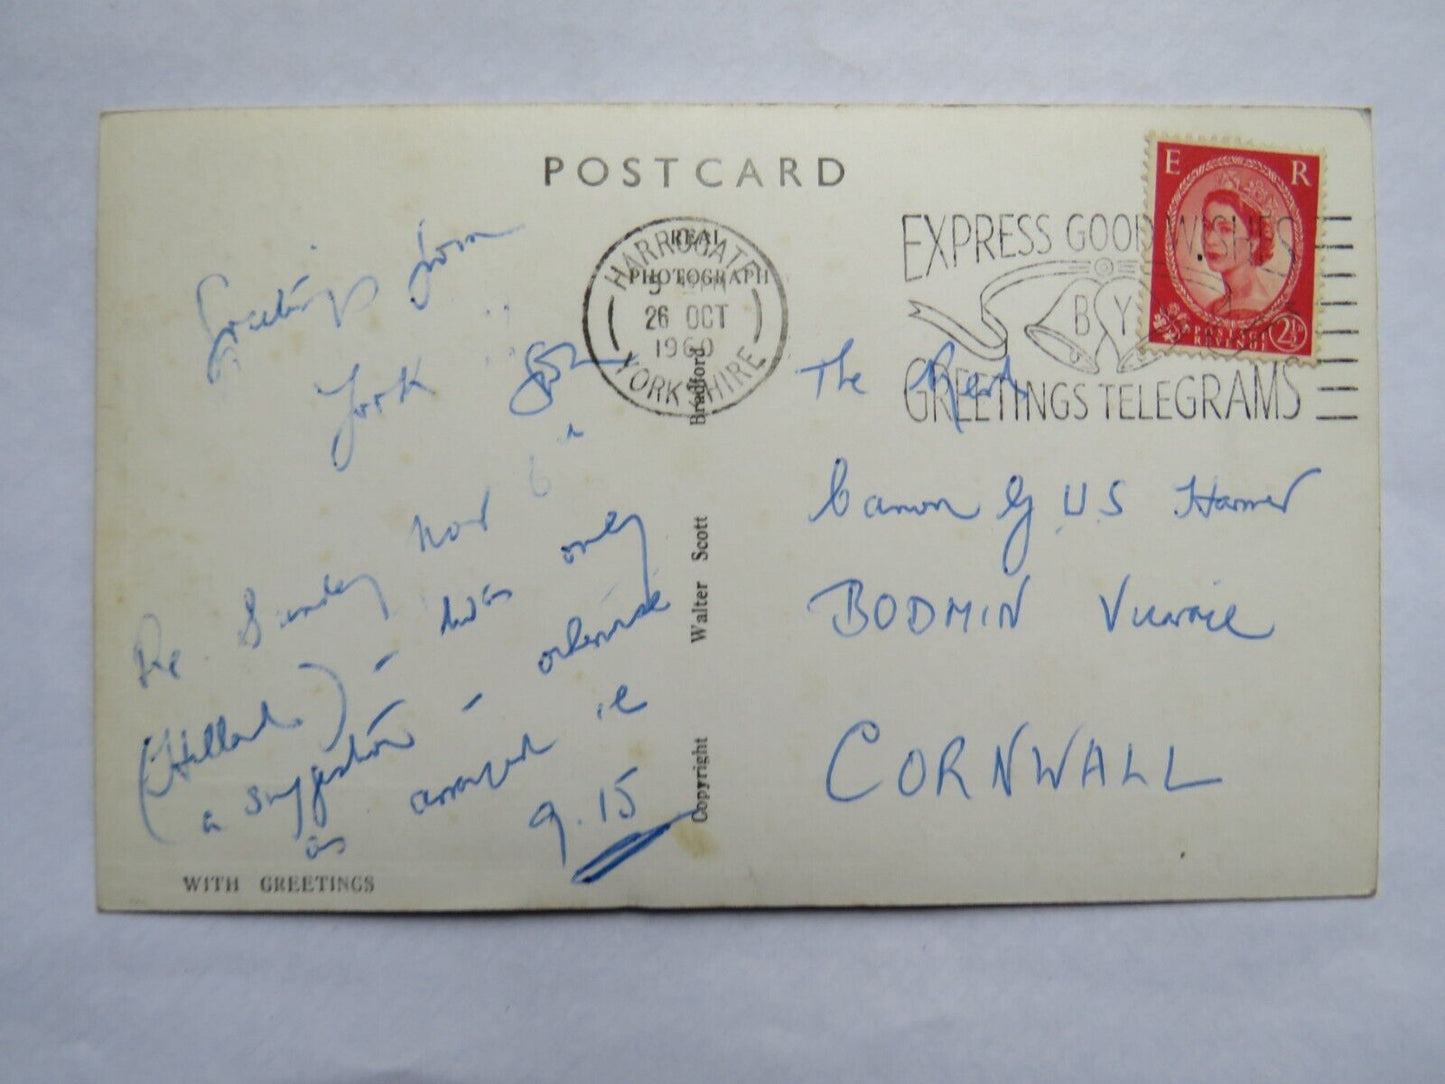 POSTCARD
REAL
PHOTOGRAPH
HARROGATE
26 OCT
1960
YORKSHIRE
EXPRESS GOOD WISHES
BY
GREETINGS TELEGRAMS
E R
POSTAGE
REVENUE
2½
Greetings from
York
Re Sunday Nov 6
- this was only
a suggestion - otherwise
as arranged ie
9.15
The Revd
Canon G U S
BODMIN Vicarage
CORNWALL
Copyright Walter Scott Bradford
WITH GREETINGS